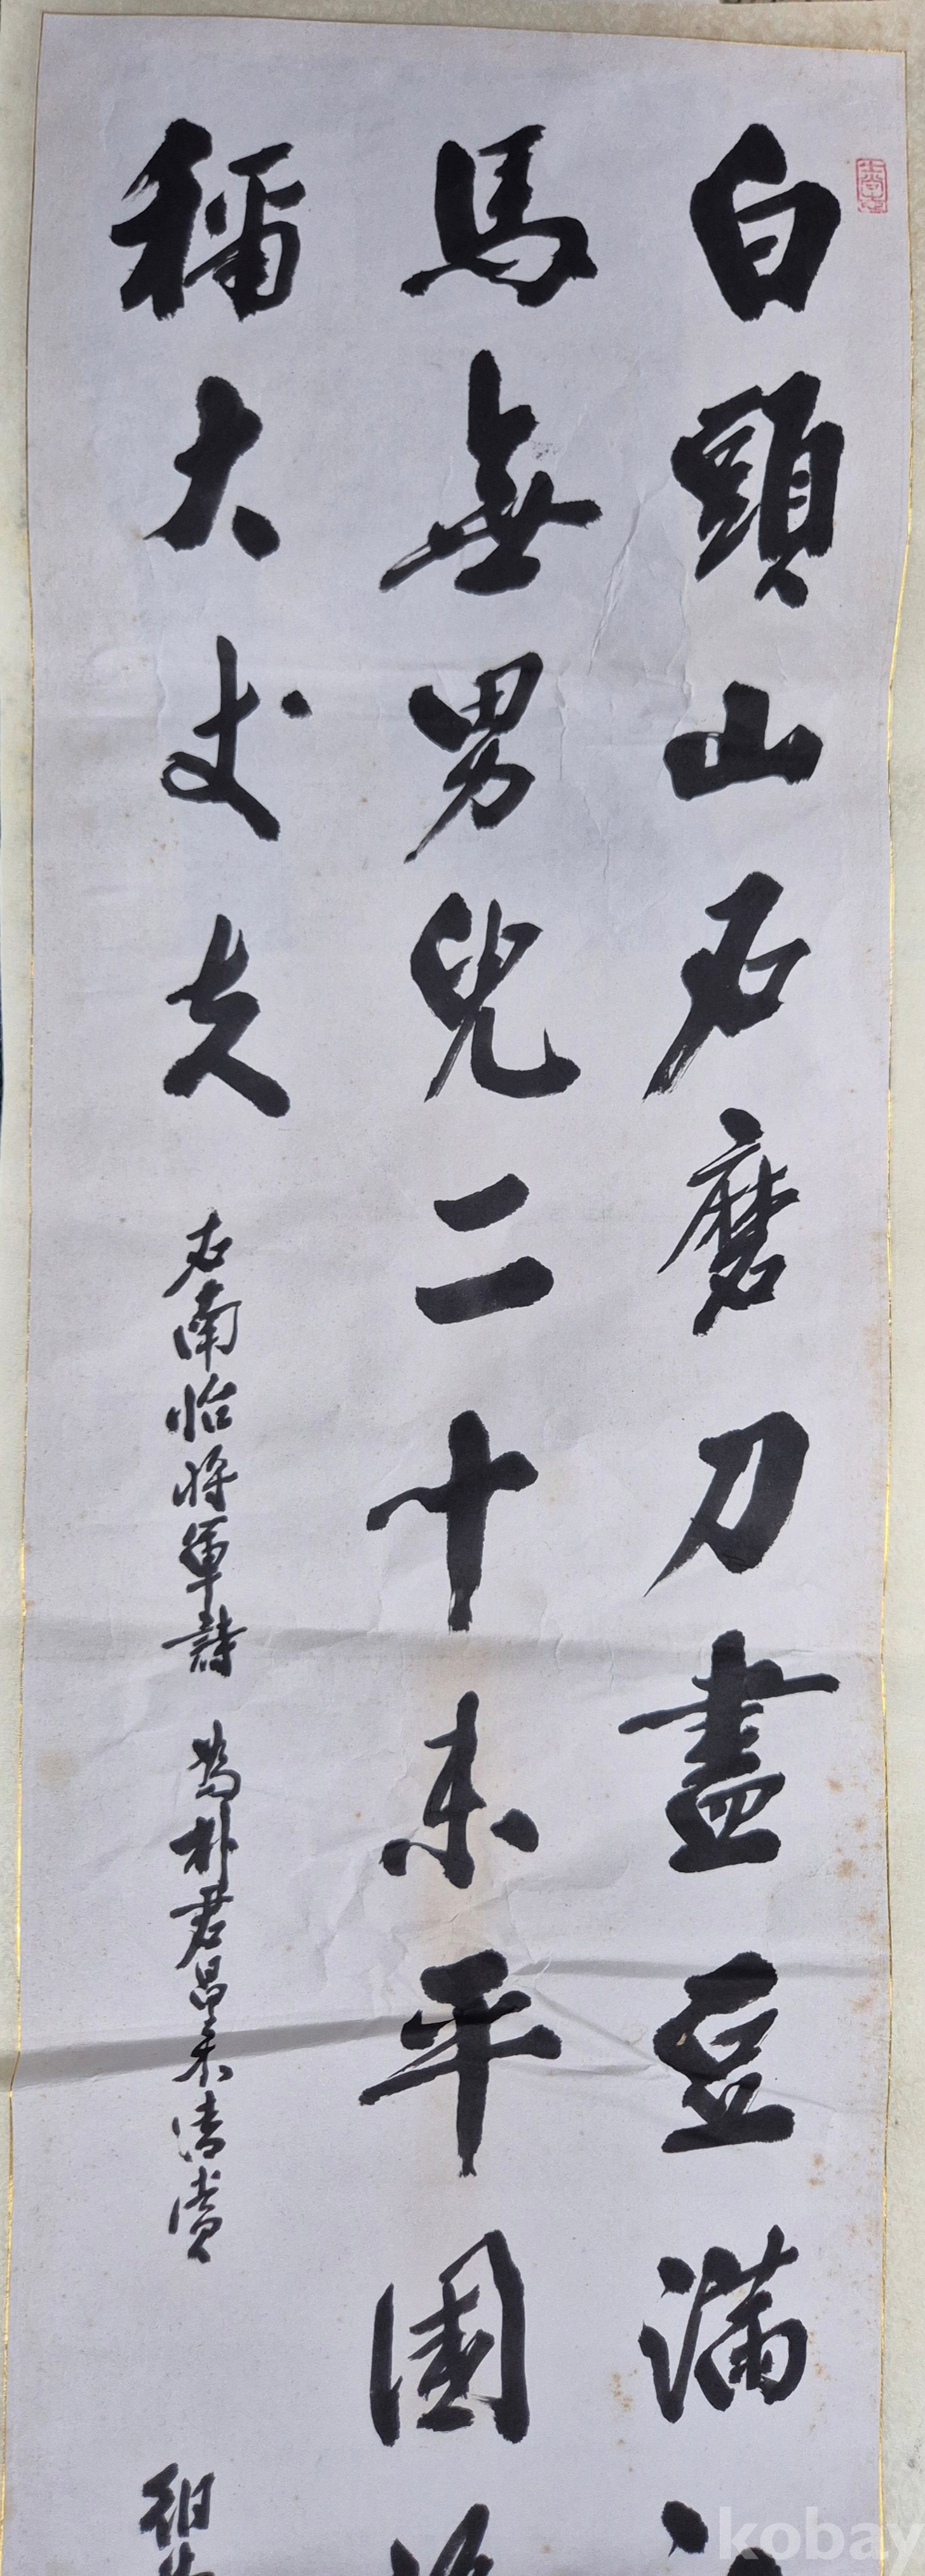 白頭山石磨刀盡豆滿
馬無男兒二十未平國
稱大丈夫
右南怡將軍詩 為朴君昌禾清賞
kobay